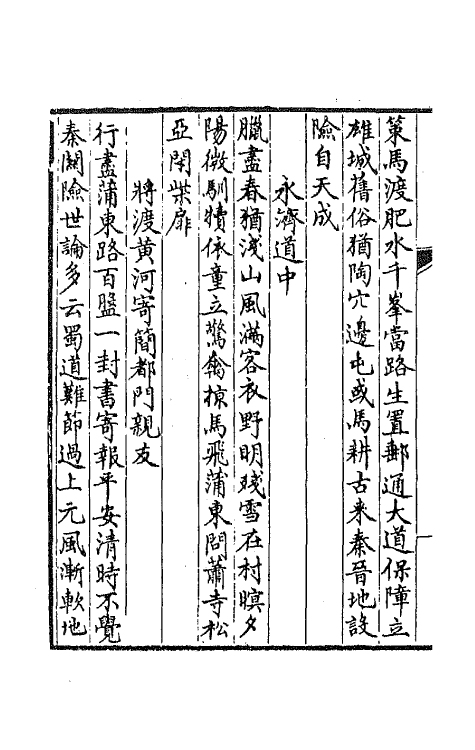 策馬渡肥水千峯當路生置郵通大道保障立
雄城舊俗猶陶穴邊屯或馬耕古来秦晉地設
險自天成
永濟道中
臘盡春猶淺山風滿客衣野明殘雪在村暝夕
陽微馴犢依童立驚禽掠馬飛蒲東問蕭寺松
亞閉柴扉
將渡黄河寄簡都門親友
行盡蒲東路百盤一封書寄報平安清時不覺
秦關險世論多云蜀道難節過上元風漸軟地